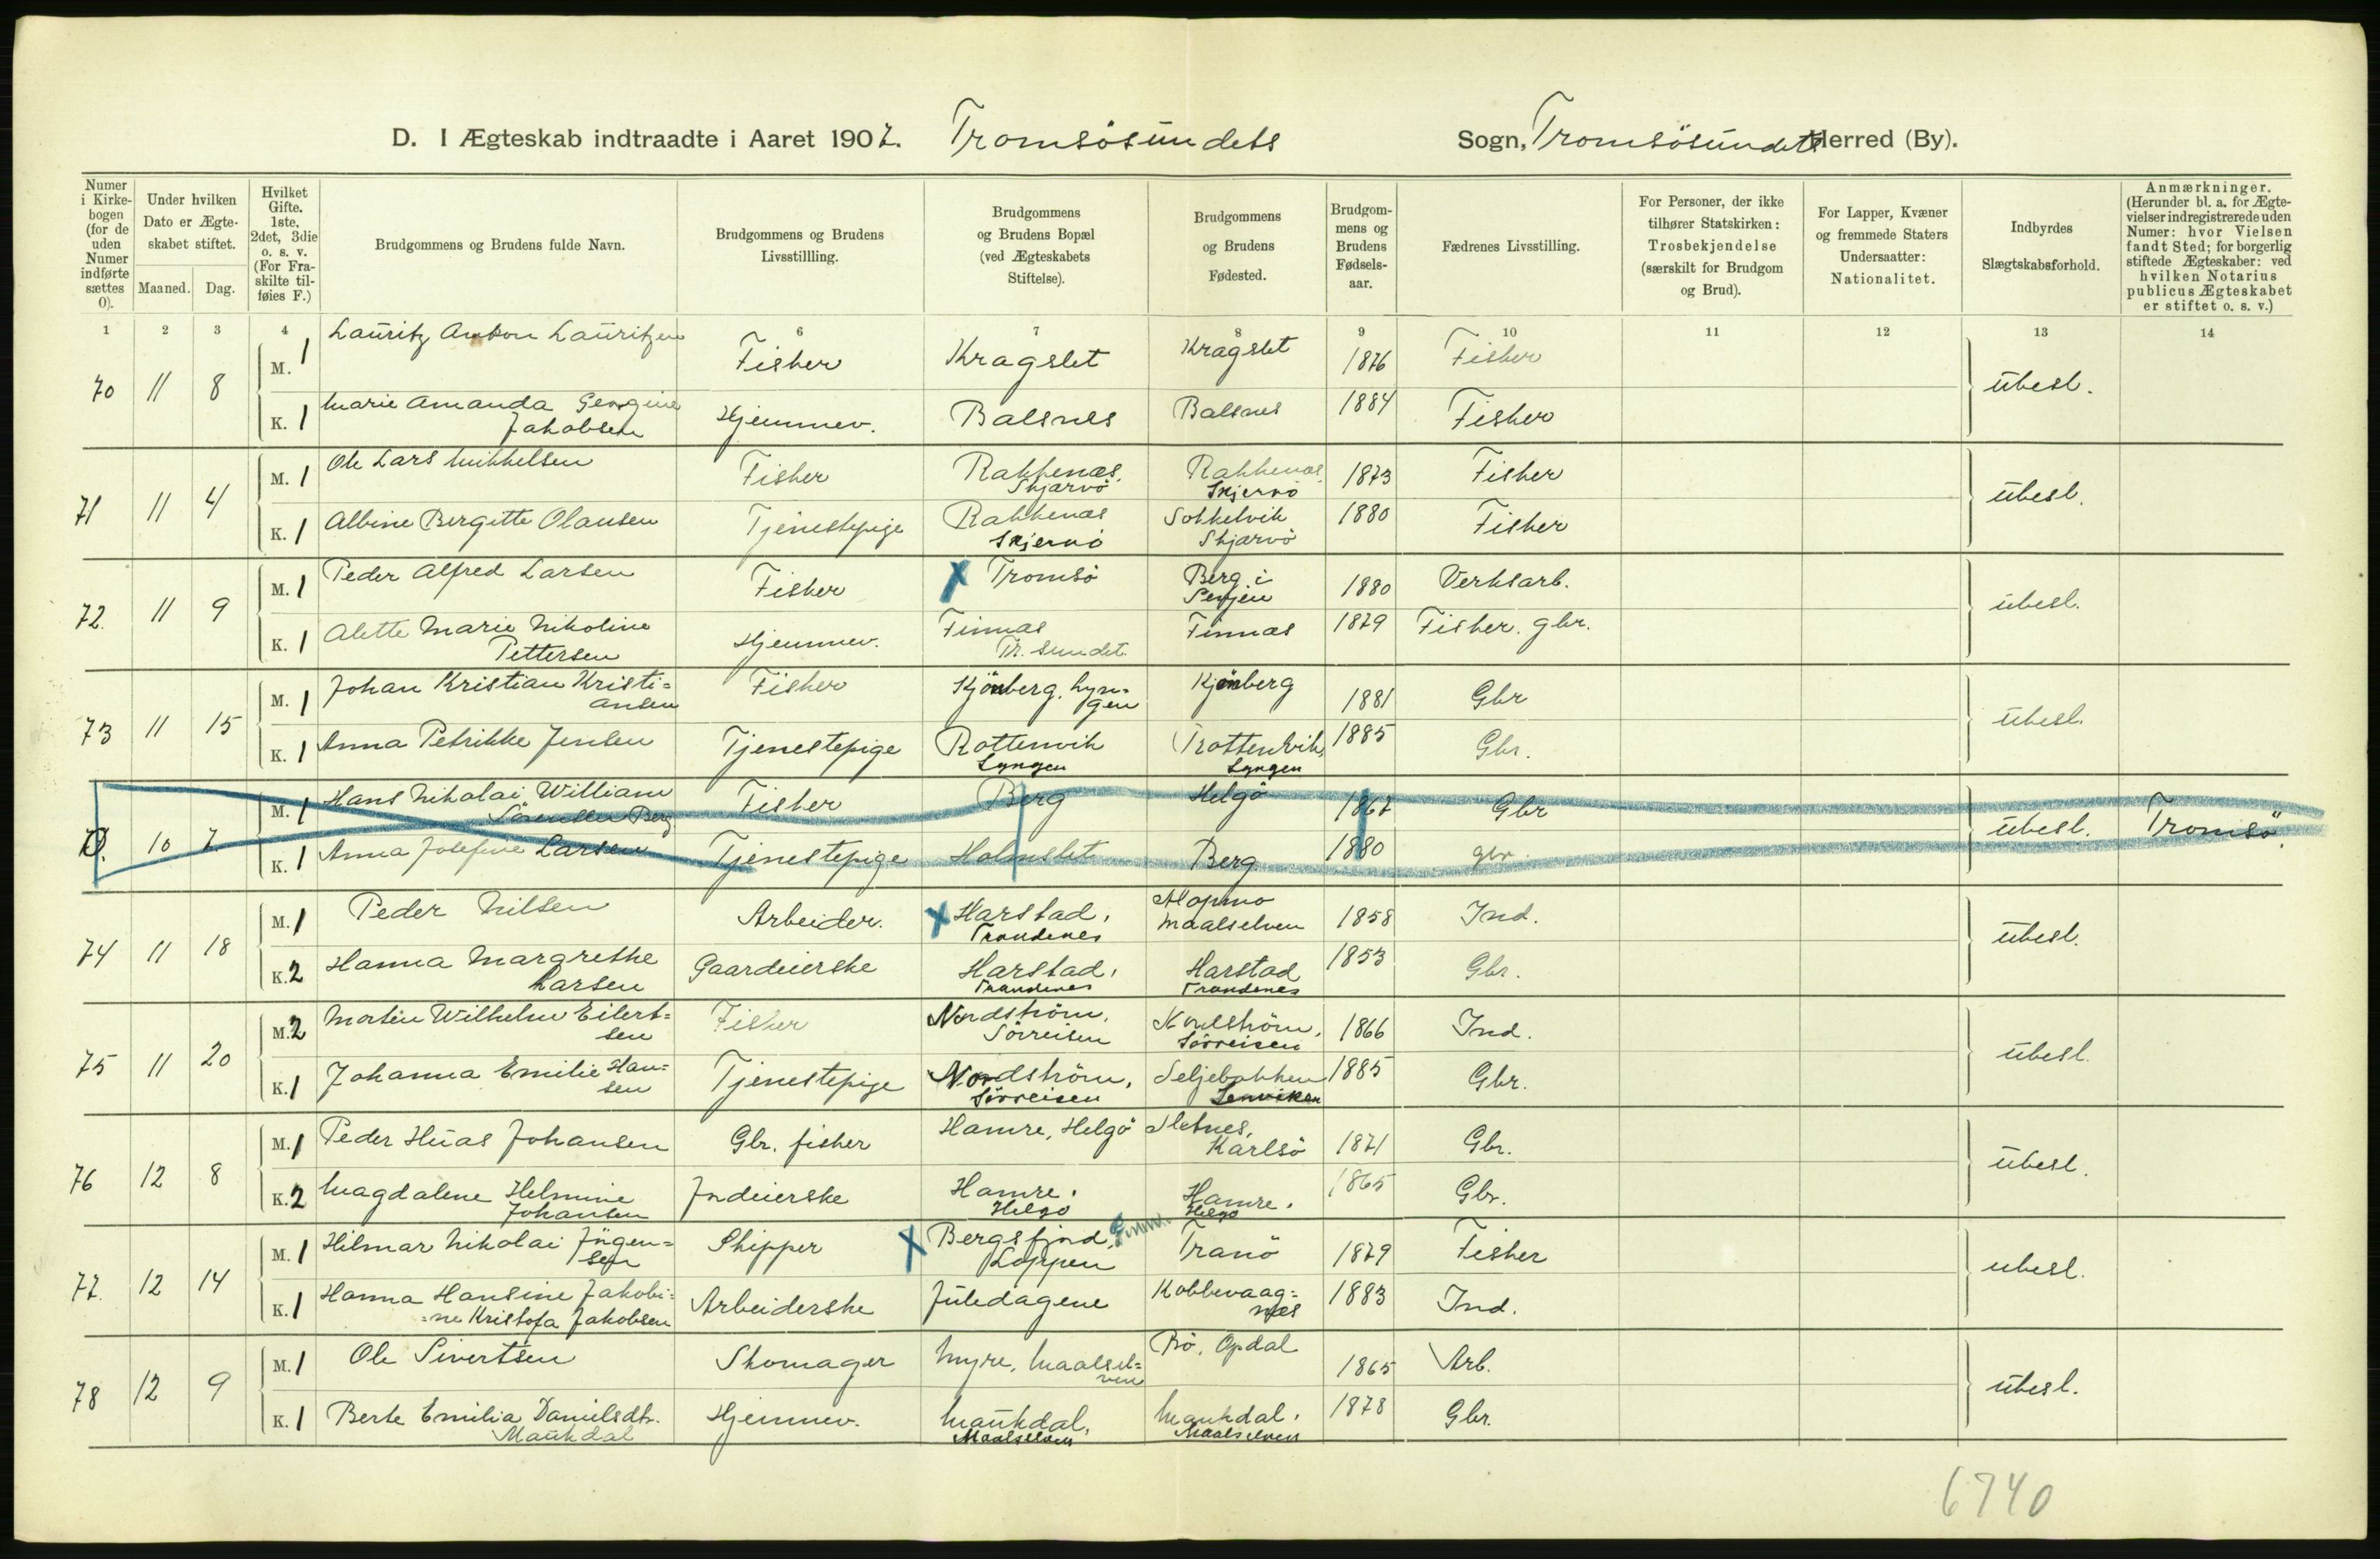 D. I Ægteskab indtraadte i Aaret 1907. Tromsösundets Sogn, Tromsösundets Herred (By).
Numer i Kirkebogen (for de uden Numer indførte sættes 0).
Under hvilken Dato er Ægteskabet stiftet.
Maaned. Dag.
Hvilket Gifte. 1ste, 2det, 3die o. s. v. (For Fraskilte tilføies F.)
Brudgommens og Brudens fulde Navn.
Brudgommens og Brudens Livsstillling.
Brudgommens og Brudens Bopæl (ved Ægteskabets Stiftelse).
Brudgommens og Brudens Fødested.
Brudgommens og Brudens Fødselsaar.
Fædrenes Livsstilling.
For Personer, der ikke tilhører Statskirken: Trosbekjendelse (særskilt for Brudgom og Brud).
For Lapper, Kvæner og fremmede Staters Undersaatter: Nationalitet.
Indbyrdes Slægtskabsforhold.
Anmærkninger. (Herunder bl. a. for Ægtevielser indregistrerede uden Numer: hvor Vielsen fandt Sted; for borgerlig stiftede Ægteskaber: ved hvilken Notarius publicus Ægteskabet er stiftet o. s. v.)
1 2 3 4 6 7 8 9 10 11 12 13 14
70 11 8 M. 1 Lauritz Anton Lauritzen Fisker Kragslet Kragslet 1876 Fisker ubesl.
K. 1 Marie Amanda Georgine Jakobsen Hjemmev. Balsnes Balsnes 1884 Fisker
71 11 4 M. 1 Ole Lars Mikkelsen Fisker Rakkenæs, Skjærvö Rakkenæs, Skjervö 1873 Fisker ubesl.
K. 1 Albine Bergitte Olausen Tjenestepige Rakkenæs Skjervö Sokkelvik Skjærvö 1880 Fisker
72. 11 9 M. 1 Peder Alfred Larsen Fisker X Tromsö Berg i Senjen 1880 Verksarb. ubesl.
K. 1 Alette Marie Nikoline Pettersen Hjemmev. Finnæs Tr. sundet. Finnæs 1879 Fisker. gbr.
73 11 15 M. 1 Johan Kristian Kristiansen Fisker Kjönberg, Lyngen Kjönberg 1881 Gbr ubesl.
K. 1 Anna Petrikke Jensen Tjenestepige Rottenvik Lyngen Rottenvik, Lyngen 1885 Gbr.
0. 10 7. M. 1 Hans Nikolai William Sörensen Berg Fisker Berg Helgö 1867 Gbr ubesl. Tromsö.
K. 1 Anna Josefine Larsen Tjenestepige Holmslet Berg 1880 gbr
74 11 18 M. 1 Peder Nilsen Arbeider. X Harstad, Trondenes Moen Maalselven 1858 Ind. ubesl.
K. 2 Hanna Margrethe Larsen Gaardeierske Harstad, Trondenes Harstad Trondenes 1853 Gbr.
75 11 20 M. 2 Morten Wilhelm Eilertsen Fisker Nordström, Sörreisen Nordström, Sörreisen 1866 Ind. ubesl.
K. 1 Johanna Emilie Hansen Tjenestepige Nordström, Sörreisen Seljebakken Lenviken 1885 Gbr.
76 12 8 M. 1 Peder Johansen Gbr. fisker Hamre, Helgö Sletnes, Karlsö 1871 Gbr. ubesl.
K. 2 Magdalene Helmine Johansen Indeierske Hamre, Helgö Hamre, Helgö 1865 Gbr.
77. 12 14 M. 1 Hilmar Nikolai Jörgensen Skipper X Bergsfjord, Loppen Finm. Tranö 1879 Fisker ubesl.
K. 1 Hanna Hansine Jakobine Kristofa Jakobsen Arbeiderske Juledagene Kobbevaagnæs 1883 Ind.
78 12 9 M. 1 Ole Sivertsen Skomager Myre, Maalselven Bö, Opdal 1865 Arb. ubesl.
K. 1 Berte Emilia Danielsdtr. Maukdal Hjemmev. Maukdal, Maalselven Maukdal, Maalselven 1878 Gbr.
6740